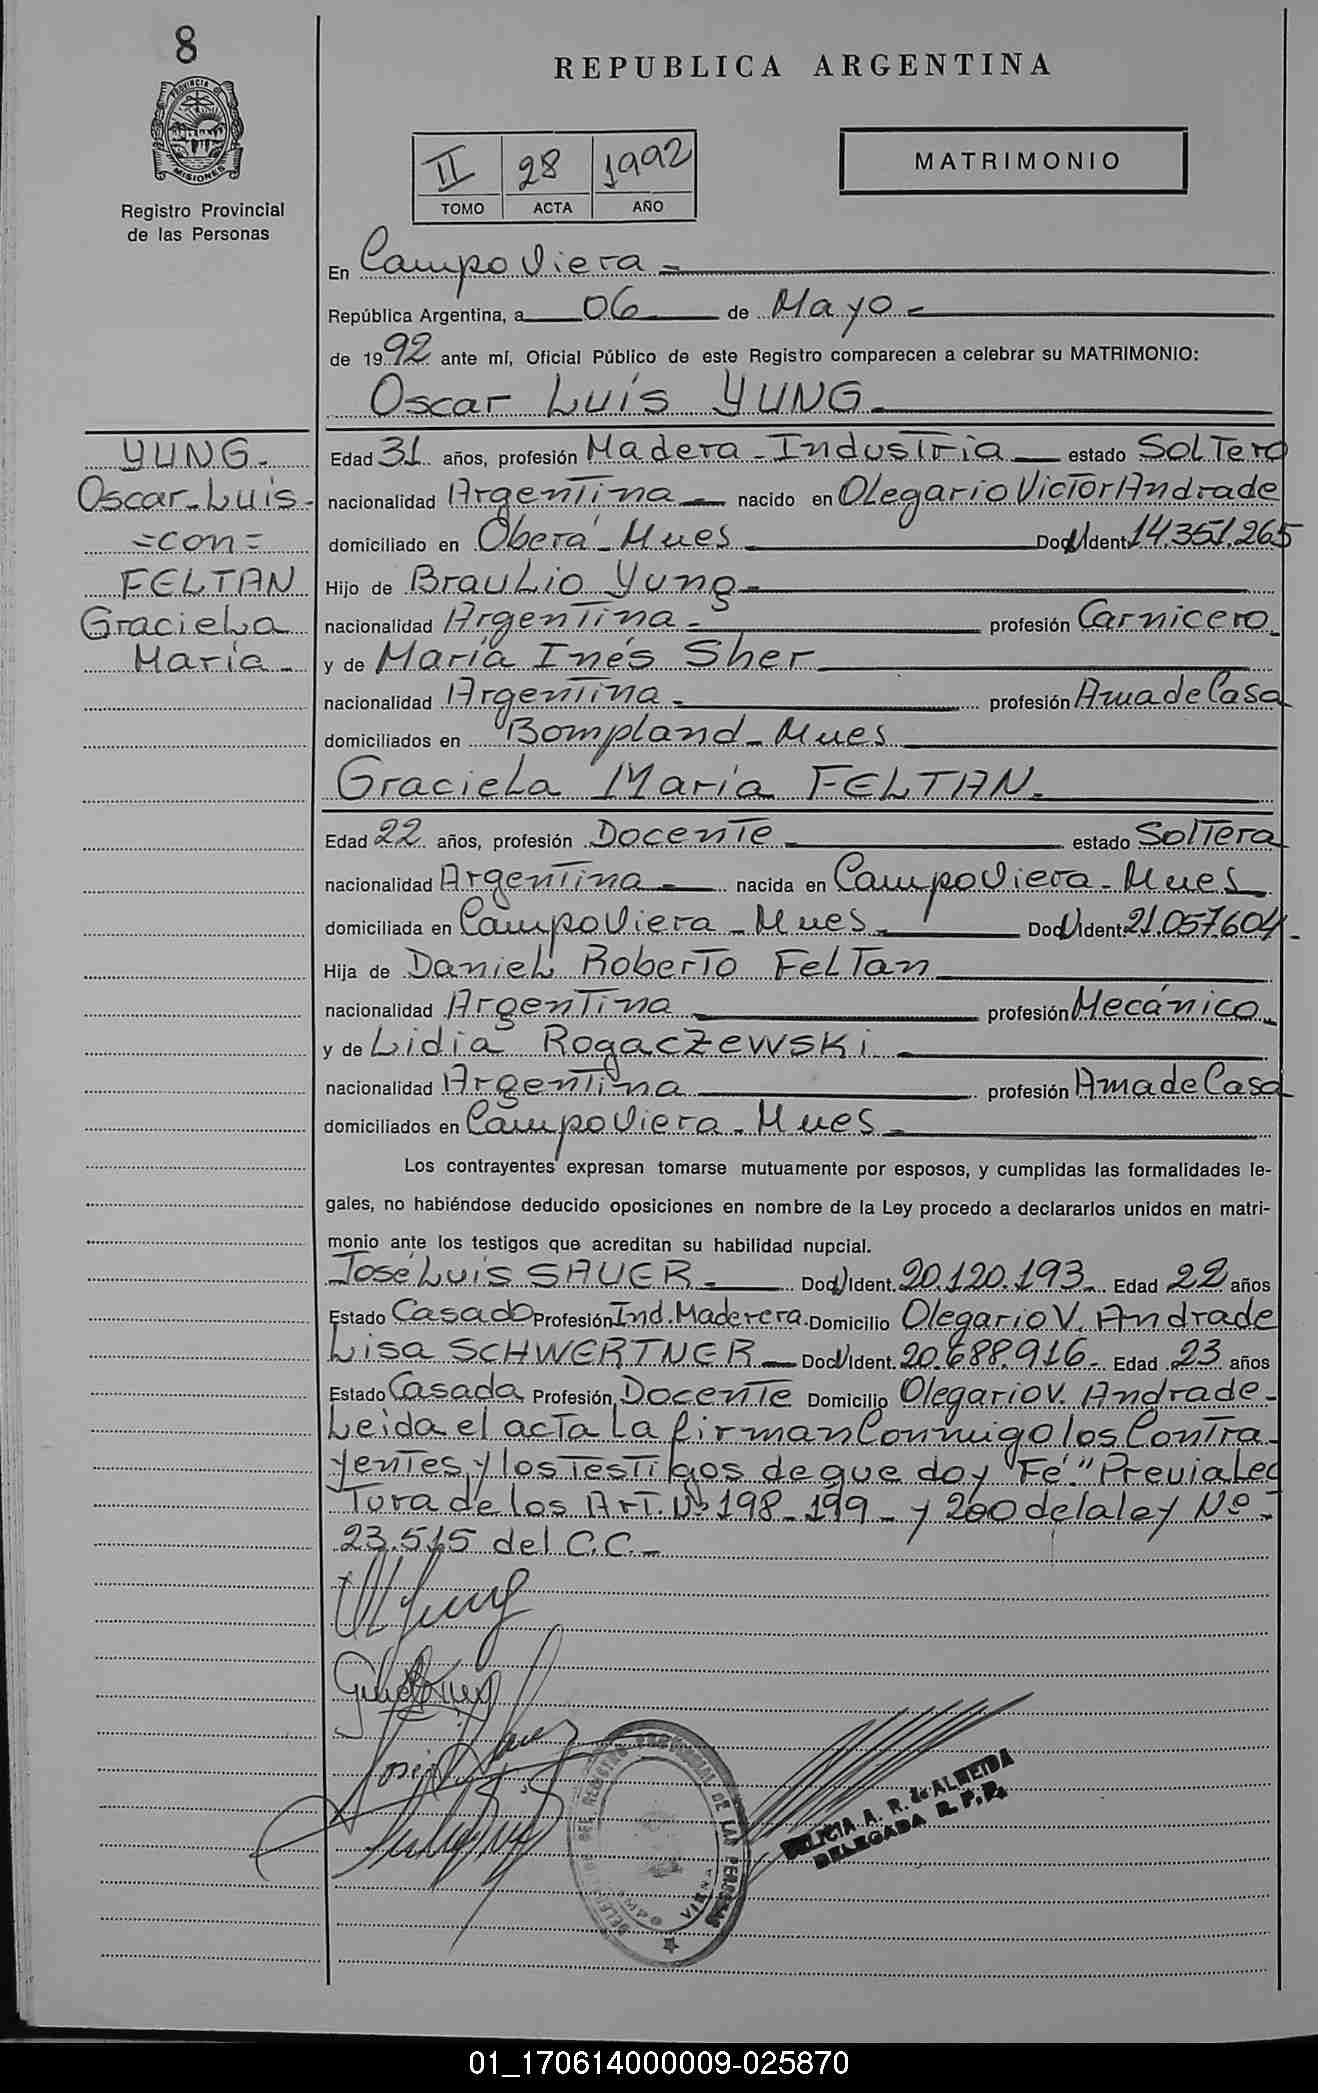 8
PROVINCIA DE
MISIONES
Registro Provincial
de las Personas
REPUBLICA ARGENTINA
II 28 1992
TOMO ACTA AÑO
MATRIMONIO
En Campo Viera =
República Argentina, a 06 de Mayo =
de 1992 ante mí, Oficial Público de este Registro comparecen a celebrar su MATRIMONIO:
Oscar Luís YUNG
YUNG.
Oscar Luis
=con=
FELTAN
Graciela
María
Edad 31 años, profesión Madera Industria estado Soltero
nacionalidad Argentina nacido en Olegario Victor Andrade
domiciliado en Oberá Mnes Doc. Ident. 14.351.265
Hijo de Braulio Yung
nacionalidad Argentina profesión Carnicero
y de María Inés Sher
nacionalidad Argentina profesión Ama de Casa
domiciliados en Bompland Mnes
Graciela María FELTAN.
Edad 22 años, profesión Docente estado Soltera
nacionalidad Argentina nacida en Campo Viera Mnes
domiciliada en Campo Viera Mnes Doc. Ident. 21.057.604
Hija de Daniel Roberto Feltan
nacionalidad Argentina profesión Mecánico
y de Lidia Rogaczewski
nacionalidad Argentina profesión Ama de Casa
domiciliados en Campo Viera Mnes
Los contrayentes expresan tomarse mutuamente por esposos, y cumplidas las formalidades le-
gales, no habiéndose deducido oposiciones en nombre de la Ley procedo a declararlos unidos en matri-
monio ante los testigos que acreditan su habilidad nupcial.
José Luís SAUER Doc. Ident. 20.120.193 Edad 22 años
Estado Casado Profesión Ind. Maderera Domicilio Olegario V. Andrade
Lisa SCHWERTNER Doc. Ident. 20.688.916 Edad 23 años
Estado Casada Profesión Docente Domicilio Olegario V. Andrade
Leida el acta la firman Conmigo los Contra
yentes y los Testigos de que doy "Fé." Previa Lec
Tura de los Art. Nº 198-199 y 200 de la ley Nº
23.515 del C.C.
DELICIA A. R. de ALMEIDA
DELEGADA R. P. P.
01_170614000009-025870